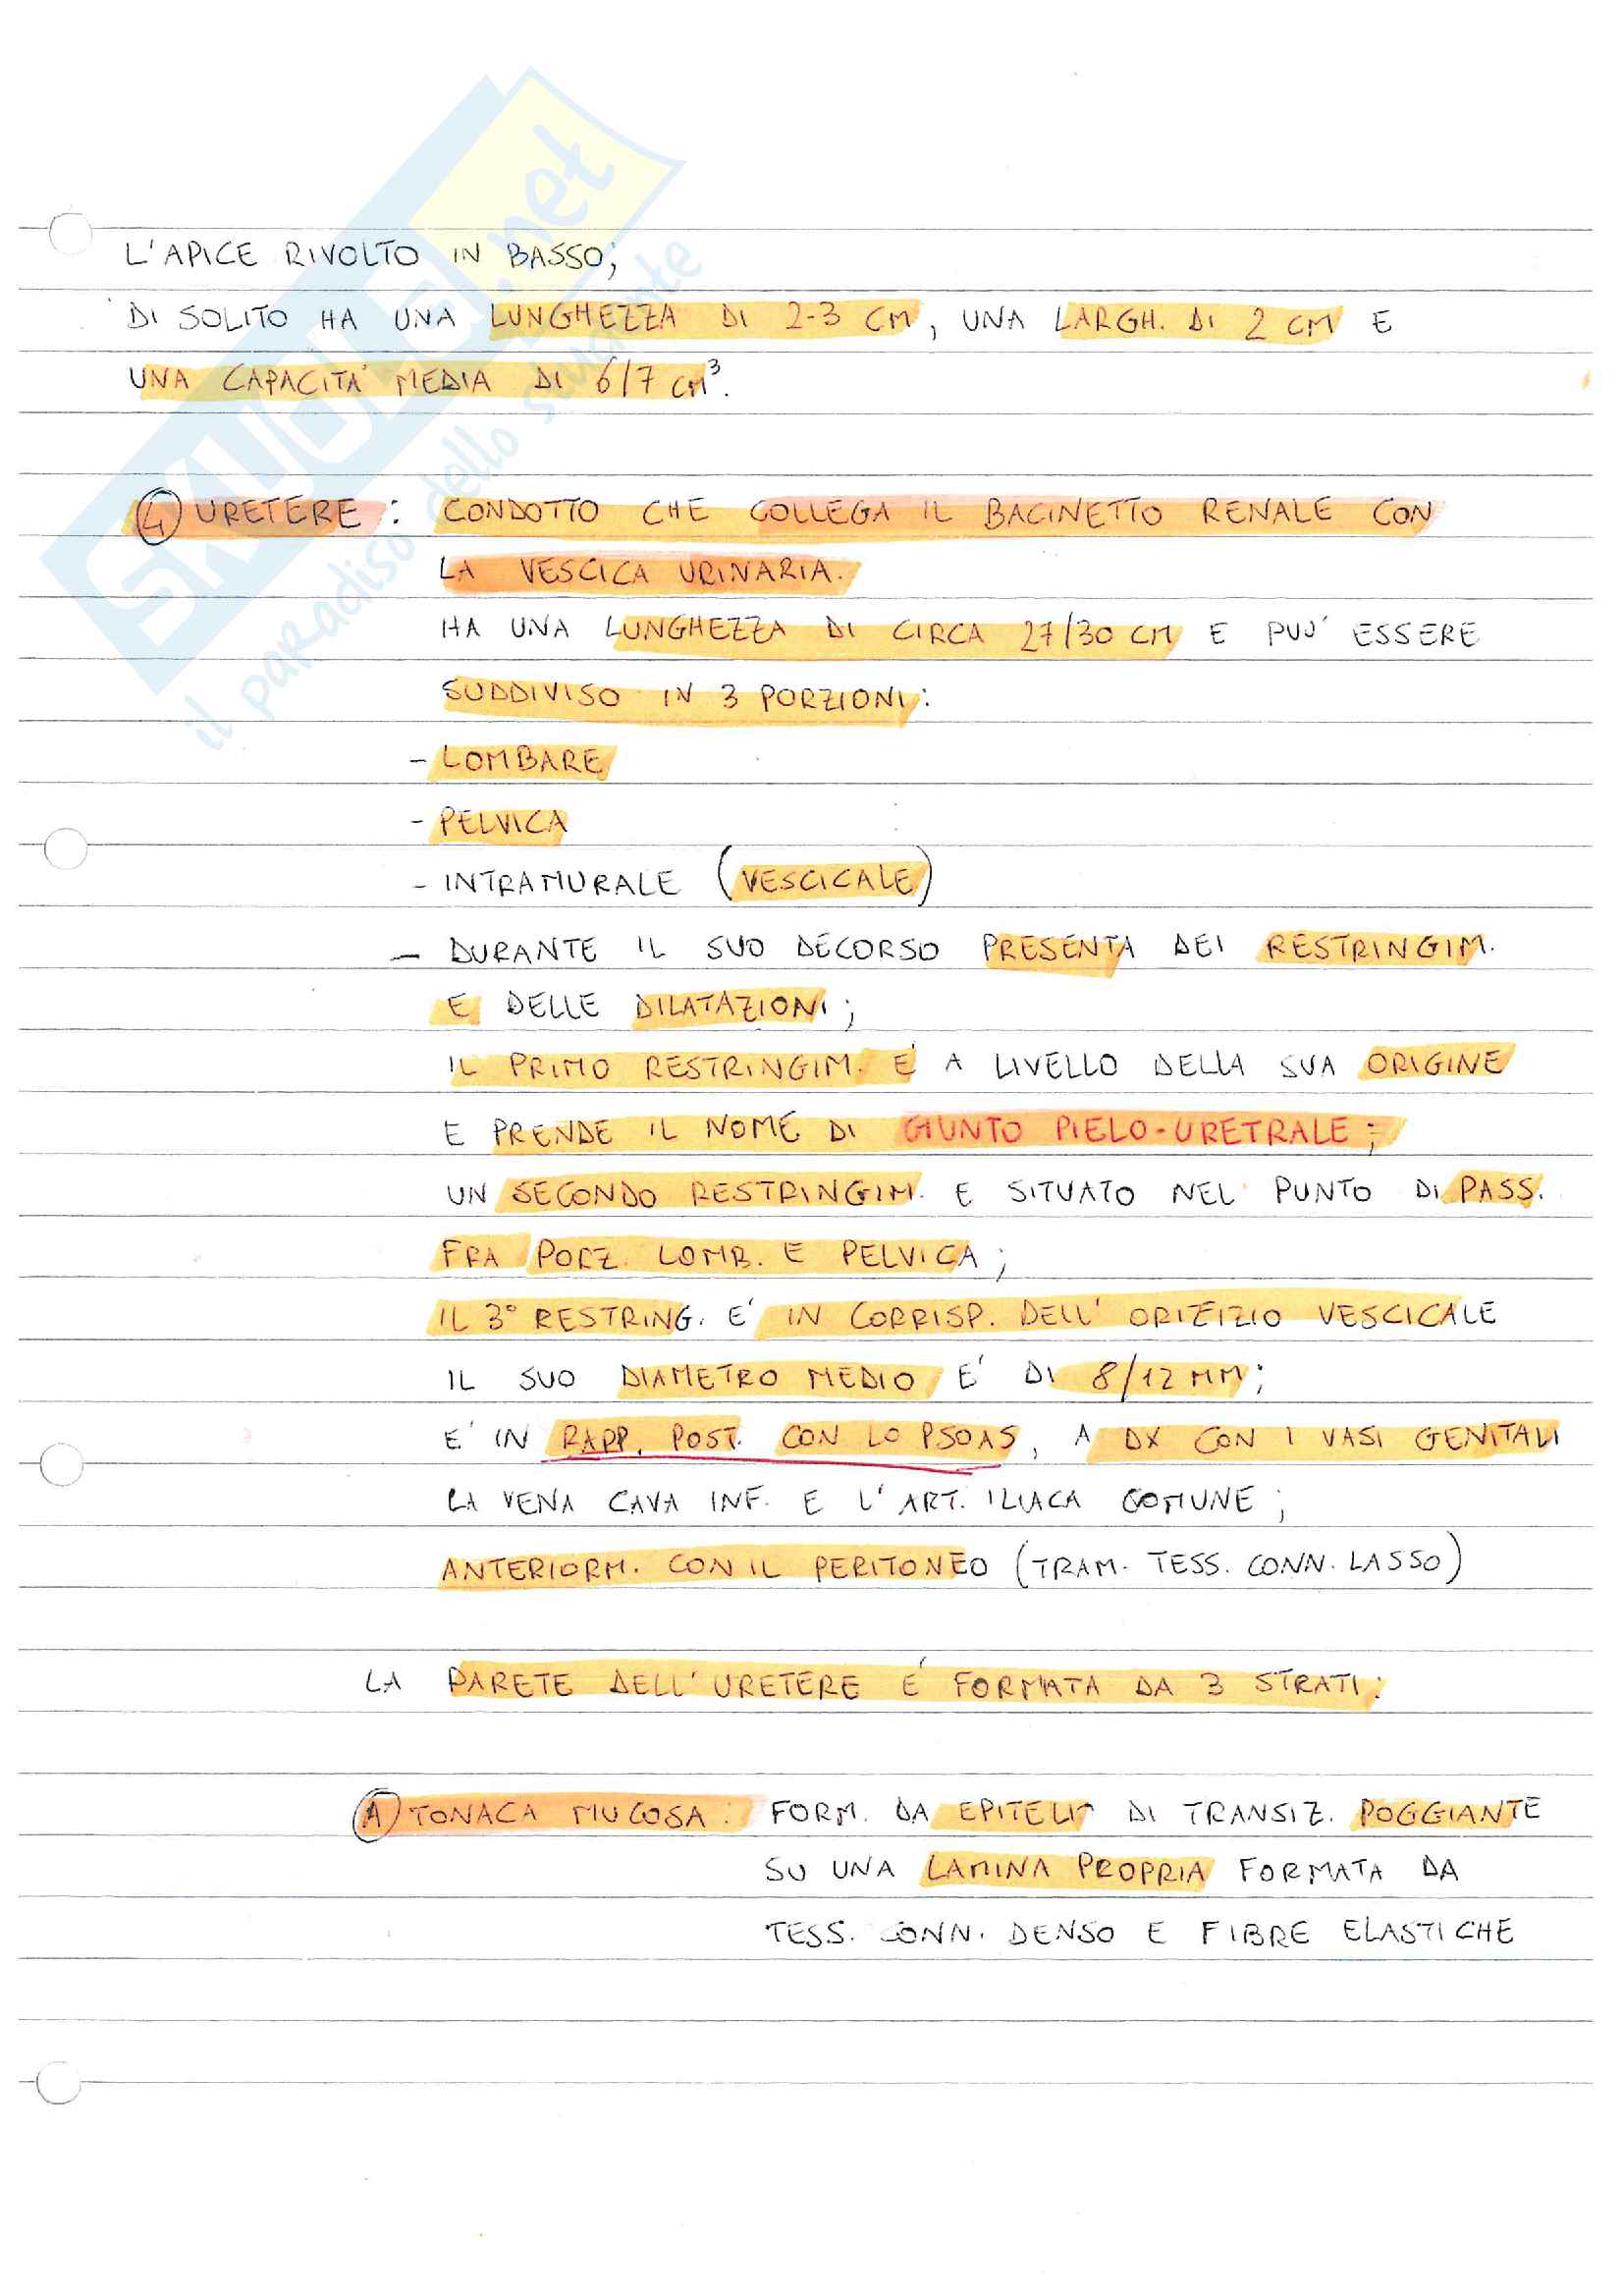 L'APICE RIVOLTO IN BASSO;
DI SOLITO HA UNA LUNGHEZZA DI 2-3 CM, UNA LARGH. DI 2 CM E
UNA CAPACITA' MEDIA DI 6/7 CM³.
4 URETERE: CONDOTTO CHE COLLEGA IL BACINETTO RENALE CON
LA VESCICA URINARIA.
HA UNA LUNGHEZZA DI CIRCA 27/30 CM E PUO' ESSERE
SUDDIVISO IN 3 PORZIONI:
- LOMBARE
- PELVICA
- INTRAMURALE (VESCICALE)
- DURANTE IL SUO DECORSO PRESENTA DEI RESTRINGIM.
E DELLE DILATAZIONI;
IL PRIMO RESTRINGIM. E' A LIVELLO DELLA SUA ORIGINE
E PRENDE IL NOME DI GIUNTO PIELO-URETRALE;
UN SECONDO RESTRINGIM. E SITUATO NEL PUNTO DI PASS.
FRA PORZ. LOMB. E PELVICA;
IL 3° RESTRING. E' IN CORRISP. DELL'ORIFIZIO VESCICALE
IL SUO DIAMETRO MEDIO E' DI 8/12 MM;
E' IN RAPP. POST. CON LO PSOAS, A DX CON I VASI GENITALI
LA VENA CAVA INF. E L'ART. ILIACA COMUNE;
ANTERIORM. CON IL PERITONEO (TRAM. TESS. CONN. LASSO)
LA PARETE DELL'URETERE E' FORMATA DA 3 STRATI:
A TONACA MUCOSA: FORM. DA EPITELIO DI TRANSIZ. POGGIANTE
SU UNA LAMINA PROPRIA FORMATA DA
TESS. CONN. DENSO E FIBRE ELASTICHE
SKUOLA.net
il paradiso dello studente